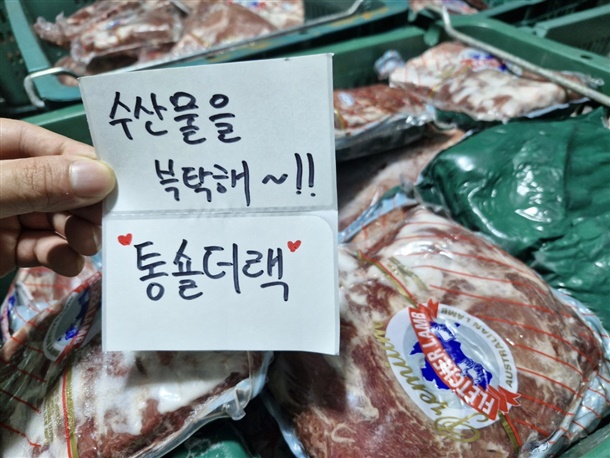 수산물을
부탁해 ~!!
"통숄더랙"
FLETCHER LAMB
AUSTRALIAN LAMB
Premium